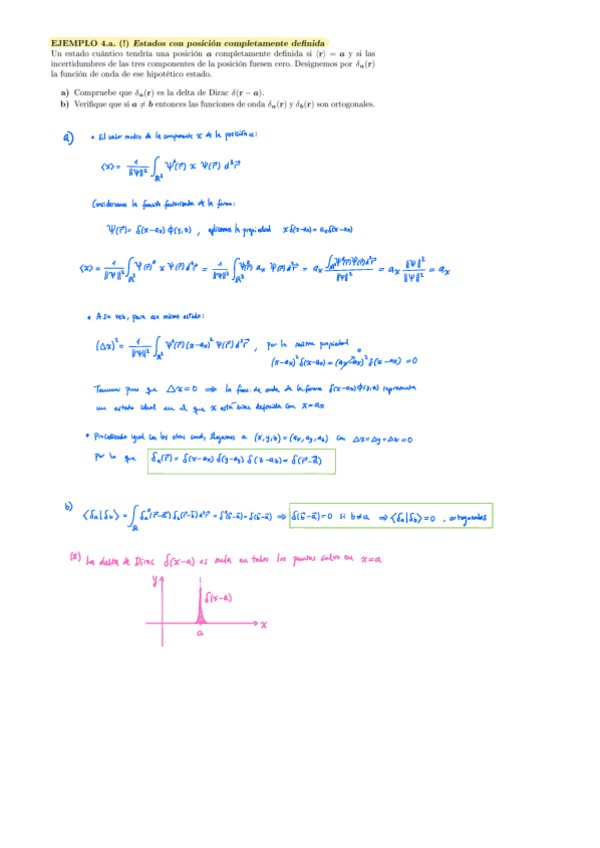 EJEMPLO 4.a. (!) Estados con posición completamente definida
Un estado cuántico tendría una posición a completamente definida si ⟨r⟩ = a y si las
incertidumbres de las tres componentes de la posición fuesen cero. Designemos por δₐ(r)
la función de onda de ese hipotético estado.
a) Compruebe que δₐ(r) es la delta de Dirac δ(r − a).
b) Verifique que si a ≠ b entonces las funciones de onda δₐ(r) y δ_b(r) son ortogonales.
a) • El valor medio de la componente x de la posición es:
⟨x⟩ = 1/‖Ψ‖² ∫_ℝ³ Ψ*(r⃗) x Ψ(r⃗) d³r⃗
Consideremos la función factorizada de la forma:
Ψ(r⃗) = δ(x-aₓ) ϕ(y,z) , aplicamos la propiedad x δ(x-aₓ) = aₓ δ(x-aₓ)
⟨x⟩ = 1/‖Ψ‖² ∫_ℝ³ Ψ(r⃗)* x Ψ(r⃗) d³r⃗ = 1/‖Ψ‖² ∫_ℝ³ Ψ*(r⃗) aₓ Ψ(r⃗) d³r⃗ = aₓ ∫_ℝ³ Ψ*(r⃗)Ψ(r⃗) d³r⃗/‖Ψ‖² = aₓ ‖Ψ‖²/‖Ψ‖² = aₓ
• A su vez, para ese mismo estado:
(Δx)² = 1/‖Ψ‖² ∫_ℝ³ Ψ*(r⃗) (x-aₓ)² Ψ(r⃗) d³r⃗ , por la misma propiedad
(x-aₓ)² δ(x-aₓ) = (aₓ-aₓ)² δ(x-aₓ) = 0
Tenemos pues que Δx = 0 ⟹ la func. de onda de la forma δ(x-aₓ) ϕ(y,z) representa
un estado ideal en el que x está bien definida con x = aₓ
• Procediendo igual con las otras coord, llegamos a (x,y,z) = (aₓ, a_y, a_z) con Δx = Δy = Δz = 0
por lo que δₐ(r⃗) = δ(x-aₓ) δ(y-a_y) δ(z-a_z) = δ(r⃗-a⃗)
b) ⟨δₐ|δ_b⟩ = ∫_ℝ δₐ*(r⃗-a⃗) δ_b(r⃗-b⃗) d³r⃗ = δ*(b⃗-a⃗) = δ(b⃗-a⃗) ⟹ δ(b⃗-a⃗) = 0 si b ≠ a ⟹ ⟨δₐ|δ_b⟩ = 0 , ortogonales
(*) La delta de Dirac δ(x-a) es nula en todos los puntos salvo en x = a
y
δ(x-a)
a
x